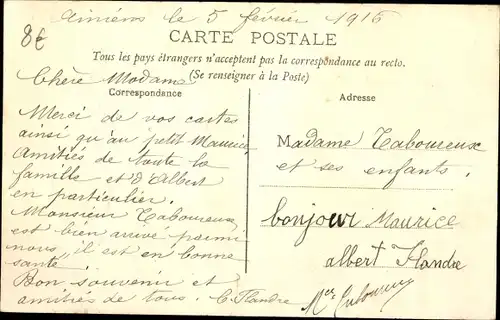 8€
Amiens le 5 février 1916
CARTE POSTALE
Tous les pays étrangers n'acceptent pas la correspondance au recto.
(Se renseigner à la Poste)
Chère Madame
Correspondance
Adresse
Merci de vos cartes
ainsi qu'au petit Maurice
Amitiés de toute la
famille et d'Albert
en particulier.
Monsieur Taboureux
est bien arrivé parmi
nous, il est en bonne
santé
Bon souvenir et
amitiés de tous. C. Flandre
Madame Taboureux
et ses enfants.
bonjour Maurice
albert Flandre